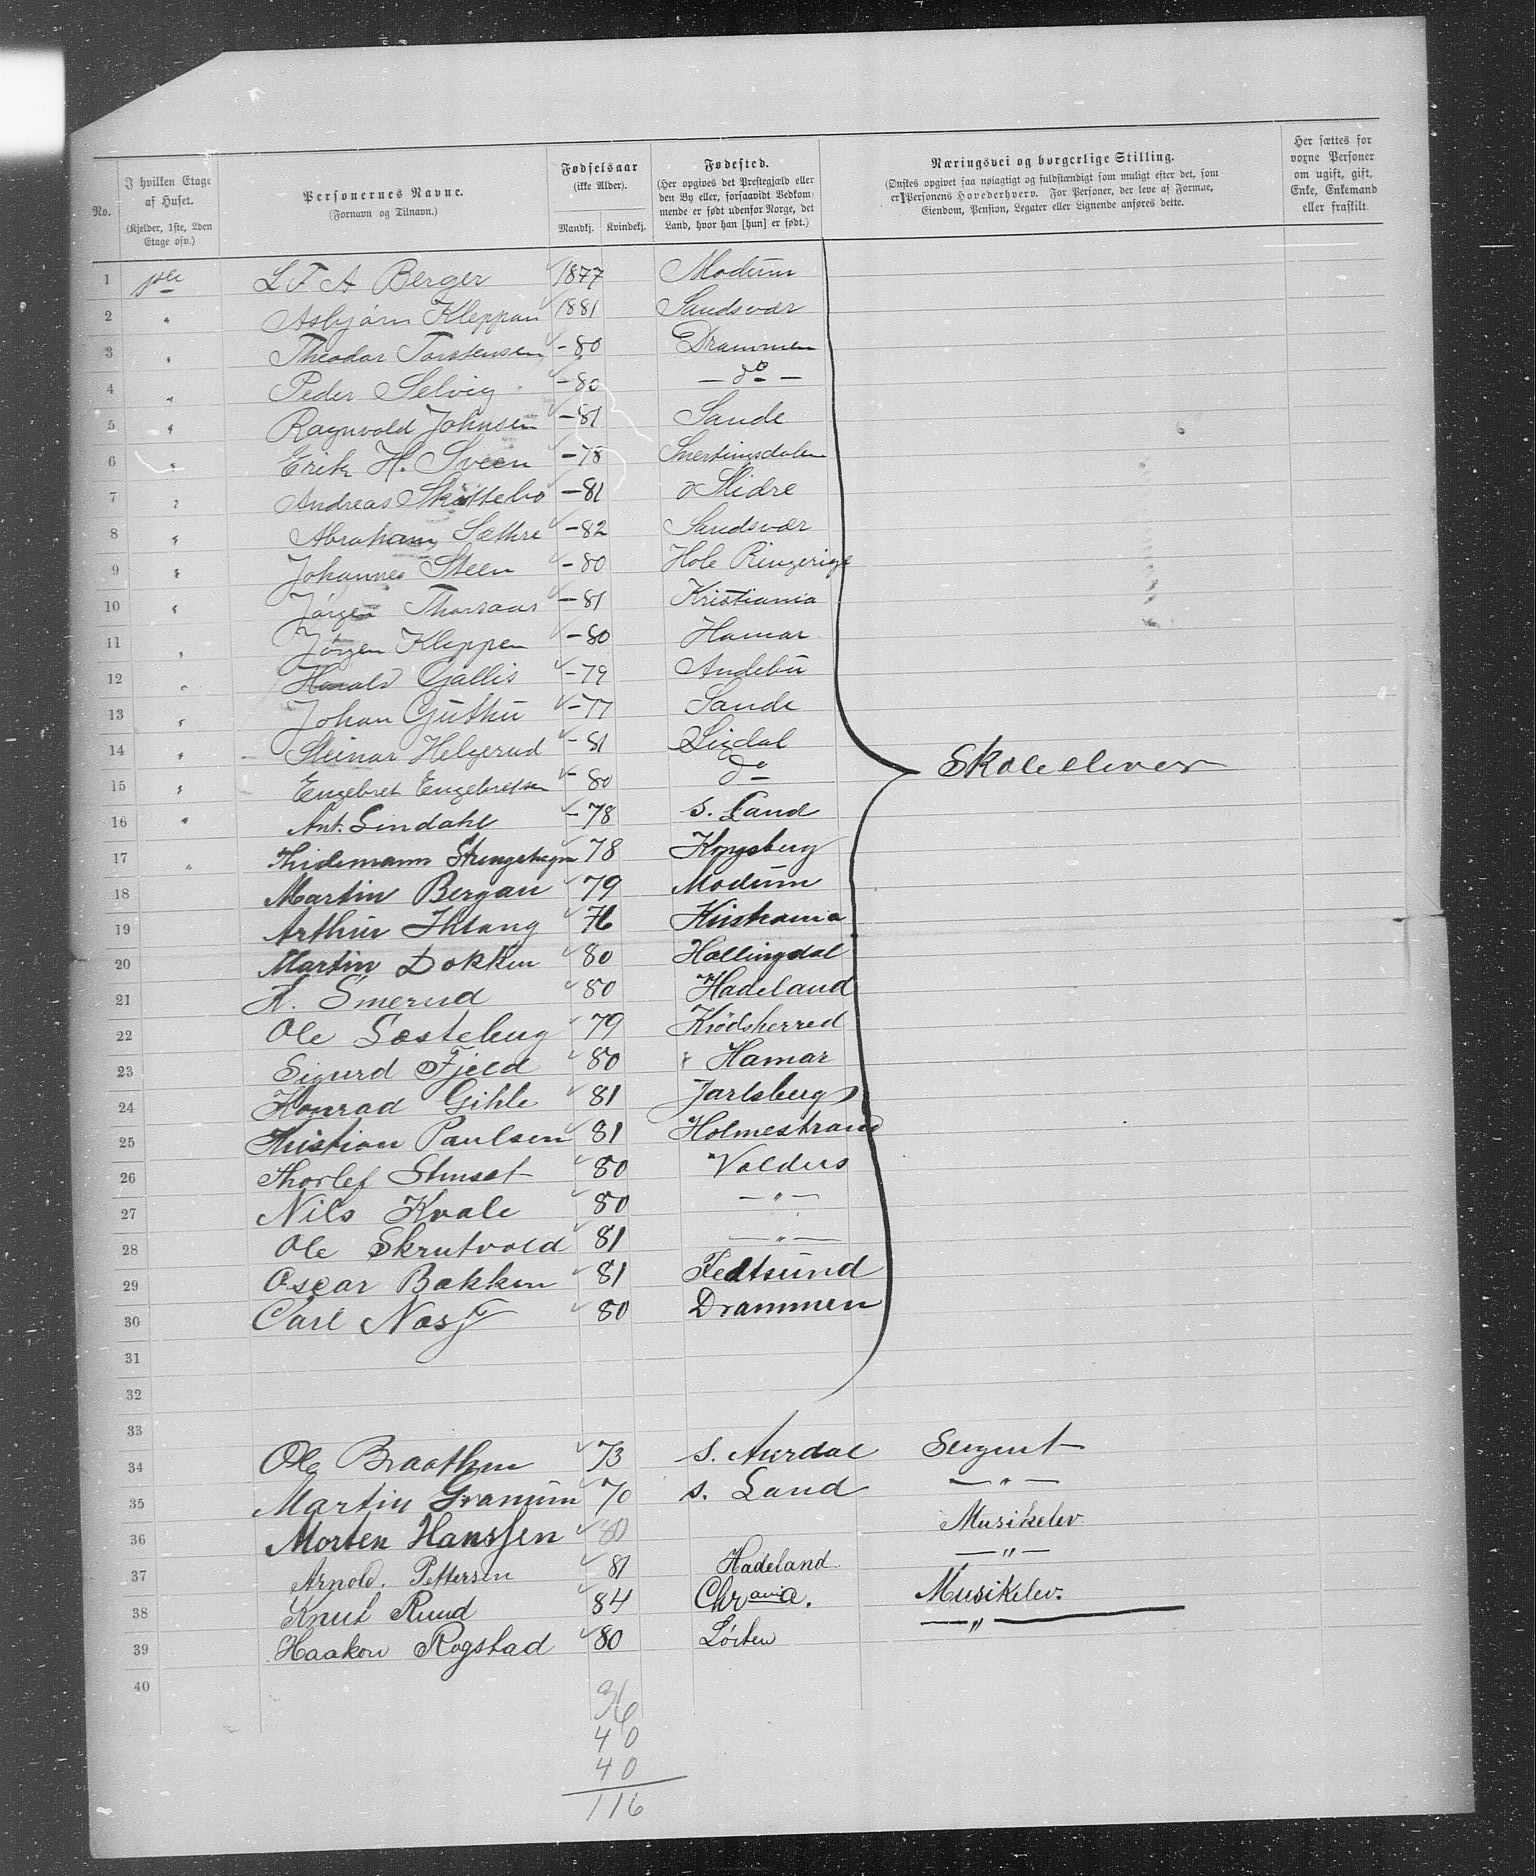 No.
I hvilken Etage af Huset.
(Kjelder, 1ste, 2den Etage osv.)
Personernes Navne.
(Fornavn og Tilnavn.)
Fødselsaar
(ikke Alder).
Mandkj. Kvindekj.
Fødested.
(Her opgives det Prestegjæld eller den By eller, forsaavidt Vedkommende er født udenfor Norge, det Land, hvor han [hun] er født.)
Næringsvei og borgerlige Stilling.
(Ønskes opgivet saa nøiagtigt og fuldstændigt som muligt efter det, som er Personens Hovederhverv. For Personer, der leve af Formue, Eiendom, Pension, Legater eller Lignende anføres dette.
Her sættes for voxne Personer om ugift, gift, Enke, Enkemand eller fraskilt.
1 L F A Berger 1877 Modum
2 " Asbjørn Kleppan 1881 Sandsvær
3 " Theodor Torstensen -80 Drammen
4 " Peder Selvig -80 - do -
5 " Ragnvald Johnsen -81 Sande
6 " Erik H. Sveen -78 Snertingsdalen
7 " Andreas Skattebo -81 ø Slidre
8 " Abraham Sæthre -82 Sandsvær
9 " Johannes Steen -80 Hole Ringerige
10 " Jørgen Thorsaas -81 Kristiania
11 " Jörgen Kleppen -80 Hamar
12 " Harald Gallis -79 Andebu
13 " Johan Guthu -77 Sande
14 " Steinar Helgerud -81 Sigdal
Skoleelever
15 " Engebret Engebretsen -80 do
16 " Ant. Lindahl -78 S. Land
17 " Stengehagen 78 Kongsberg
18 Martin Bergan 79 Modum
19 Arthur Ihlang 76 Kristiania
20 Martin Dokken 80 Hallingdal
21 A. Smerud 80 Hadeland
22 Ole Sastebug 79 Krødsherred
23 Sigurd Fjeld 80 Hamar
24 Konrad Gihle 81 Jarlsberg
25 Kristian Paulsen 81 Holmestrand
26 Thorlef Stenset 80 Valders
27 Nils Kvale 80 - " -
28 Ole Skrutvold 81 - " -
29 Oscar Bakken 81 Fedtsund
30 Carl Næss 80 Drammen
31
32
33
34 Ole Braathen 73 S. Aurdal Sergent
35 Martin Granum 70 S. Land - " -
36 Morten Hanssen 80 Musikelev
37 Arnold. Pettersen 81 Hadeland - " -
38 Knut Ruud 84 Chrania. Musikelev.
39 Haakon Rogstad 80 Løiten - " -
40
36
40
40
116